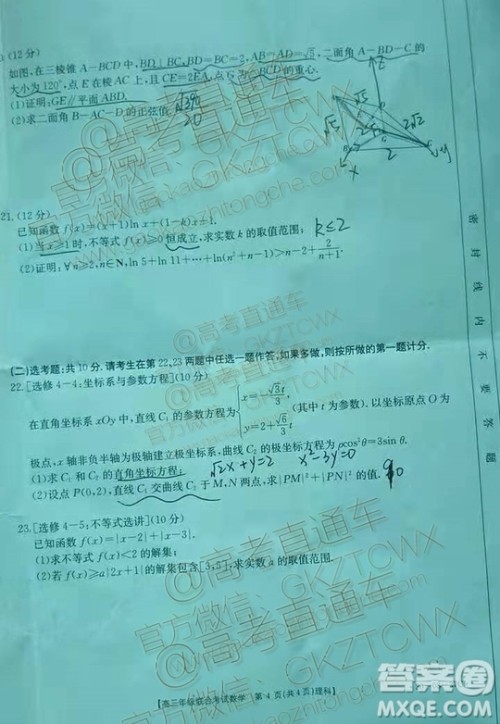 (12分)
如图,在三棱锥A-BCD中,BD⊥BC,BD=BC=2,AB=AD=√5,二面角A-BD-C的
大小为120°,点E在棱AC上,且CE=2EA,点G为△BCD的重心.
(1)证明:GE∥平面ABD.
(2)求二面角B-AC-D的正弦值. √390
20
21.(12分)
已知函数f(x)=(x+1)ln x+(1-k)x+1.
(1)当x≥1时,不等式f(x)≥0恒成立,求实数k的取值范围; k≤2
(2)证明:∀n≥2,n∈N,ln 5+ln 11+…+ln(n²+n-1)>2n-4+2/(n+1).
(二)选考题:共10分.请考生在第22,23两题中任选一题作答,如果多做,则按所做的第一题计分.
22.[选修4-4:坐标系与参数方程](10分)
在直角坐标系xOy中,直线C₁的参数方程为{x=-√3/3 t, y=2+√6/3 t (其中t为参数).以坐标原点O为
极点,x轴非负半轴为极轴建立极坐标系,曲线C₂的极坐标方程为ρcos²θ=3sin θ.
(1)求C₁和C₂的直角坐标方程; √2x+y=2 x²-3y=0
(2)设点P(0,2),直线C₁交曲线C₂于M,N两点,求|PM|²+|PN|²的值. 90
23.[选修4-5:不等式选讲](10分)
已知函数f(x)=|x-2|+|x-3|.
(1)求不等式f(x)<2的解集;
(2)若f(x)≥a|2x+1|的解集包含[3,5],求实数a的取值范围.
【高三年级联合考试数学 第4页(共4页)理科】
密封线内不要答题
@高考直通车
官方微信:GKZTCWX
gaokaozhitongche.com
答案圈
MXQE.COM